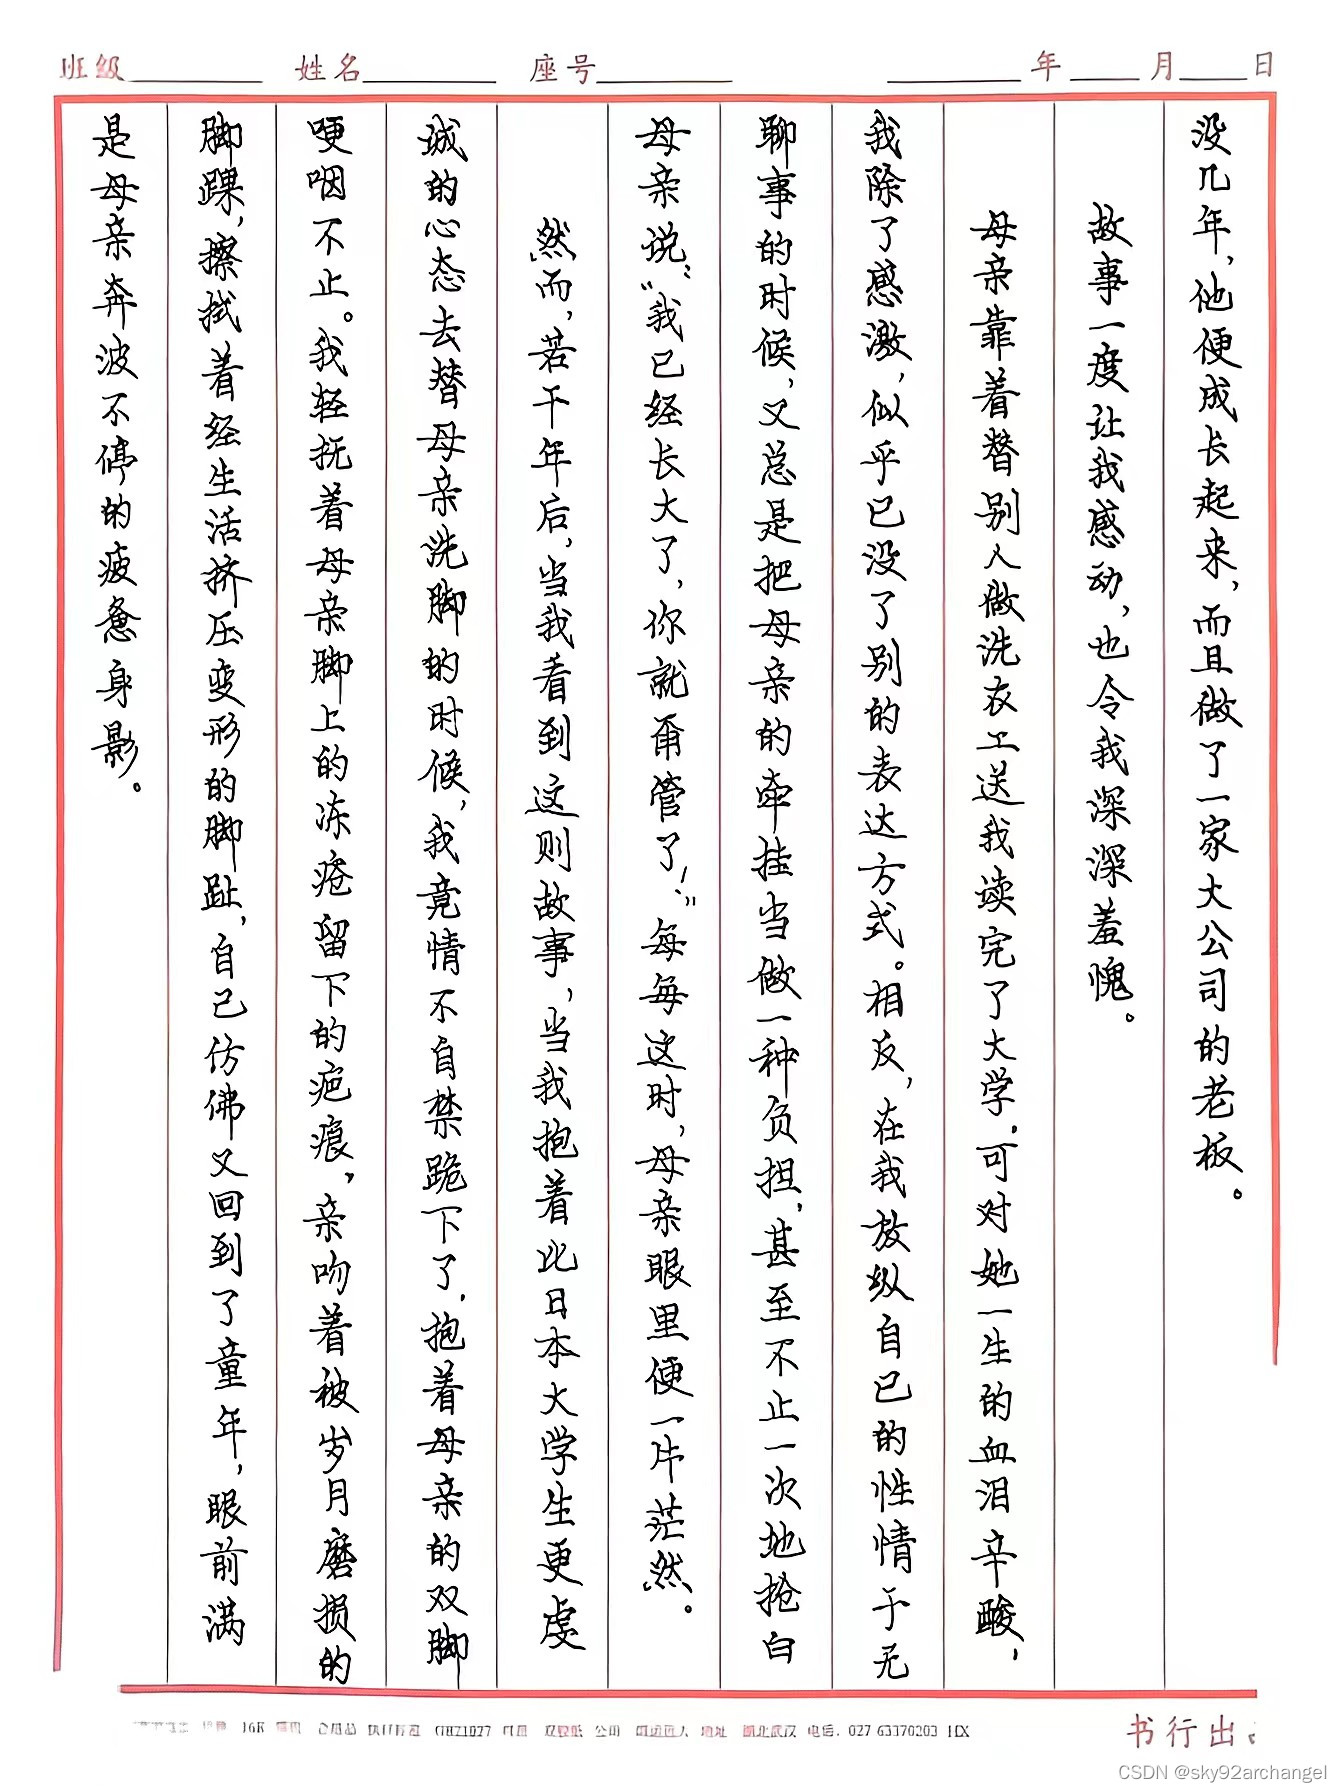 班级 姓名 座号 年 月 日
没几年，他便成长起来，而且做了一家大公司的老板。
故事一度让我感动，也令我深深羞愧。
母亲靠着替别人做洗衣工送我读完了大学.可对她一生的血泪辛酸，
我除了感激，似乎已没了别的表达方式。相反，在我放纵自己的性情于无
聊事的时候，又总是把母亲的牵挂当做一种负担，甚至不止一次地抢白
母亲说：“我已经长大了，你就甭管了！”每每这时，母亲眼里便一片茫然。
然而，若干年后，当我看到这则故事，当我抱着比日本大学生更虔
诚的心态去替母亲洗脚的时候，我竟情不自禁跪下了.抱着母亲的双脚
哽咽不止。我轻抚着母亲脚上的冻疮留下的疤痕，亲吻着被岁月磨损的
脚踝，擦拭着经生活挤压变形的脚趾，自己仿佛又回到了童年，眼前满
是母亲奔波不停的疲惫身影。
16K 执行标准 公司 地址 湖北武汉 电话：027 63370203
书行出
CSDN @sky92archangel